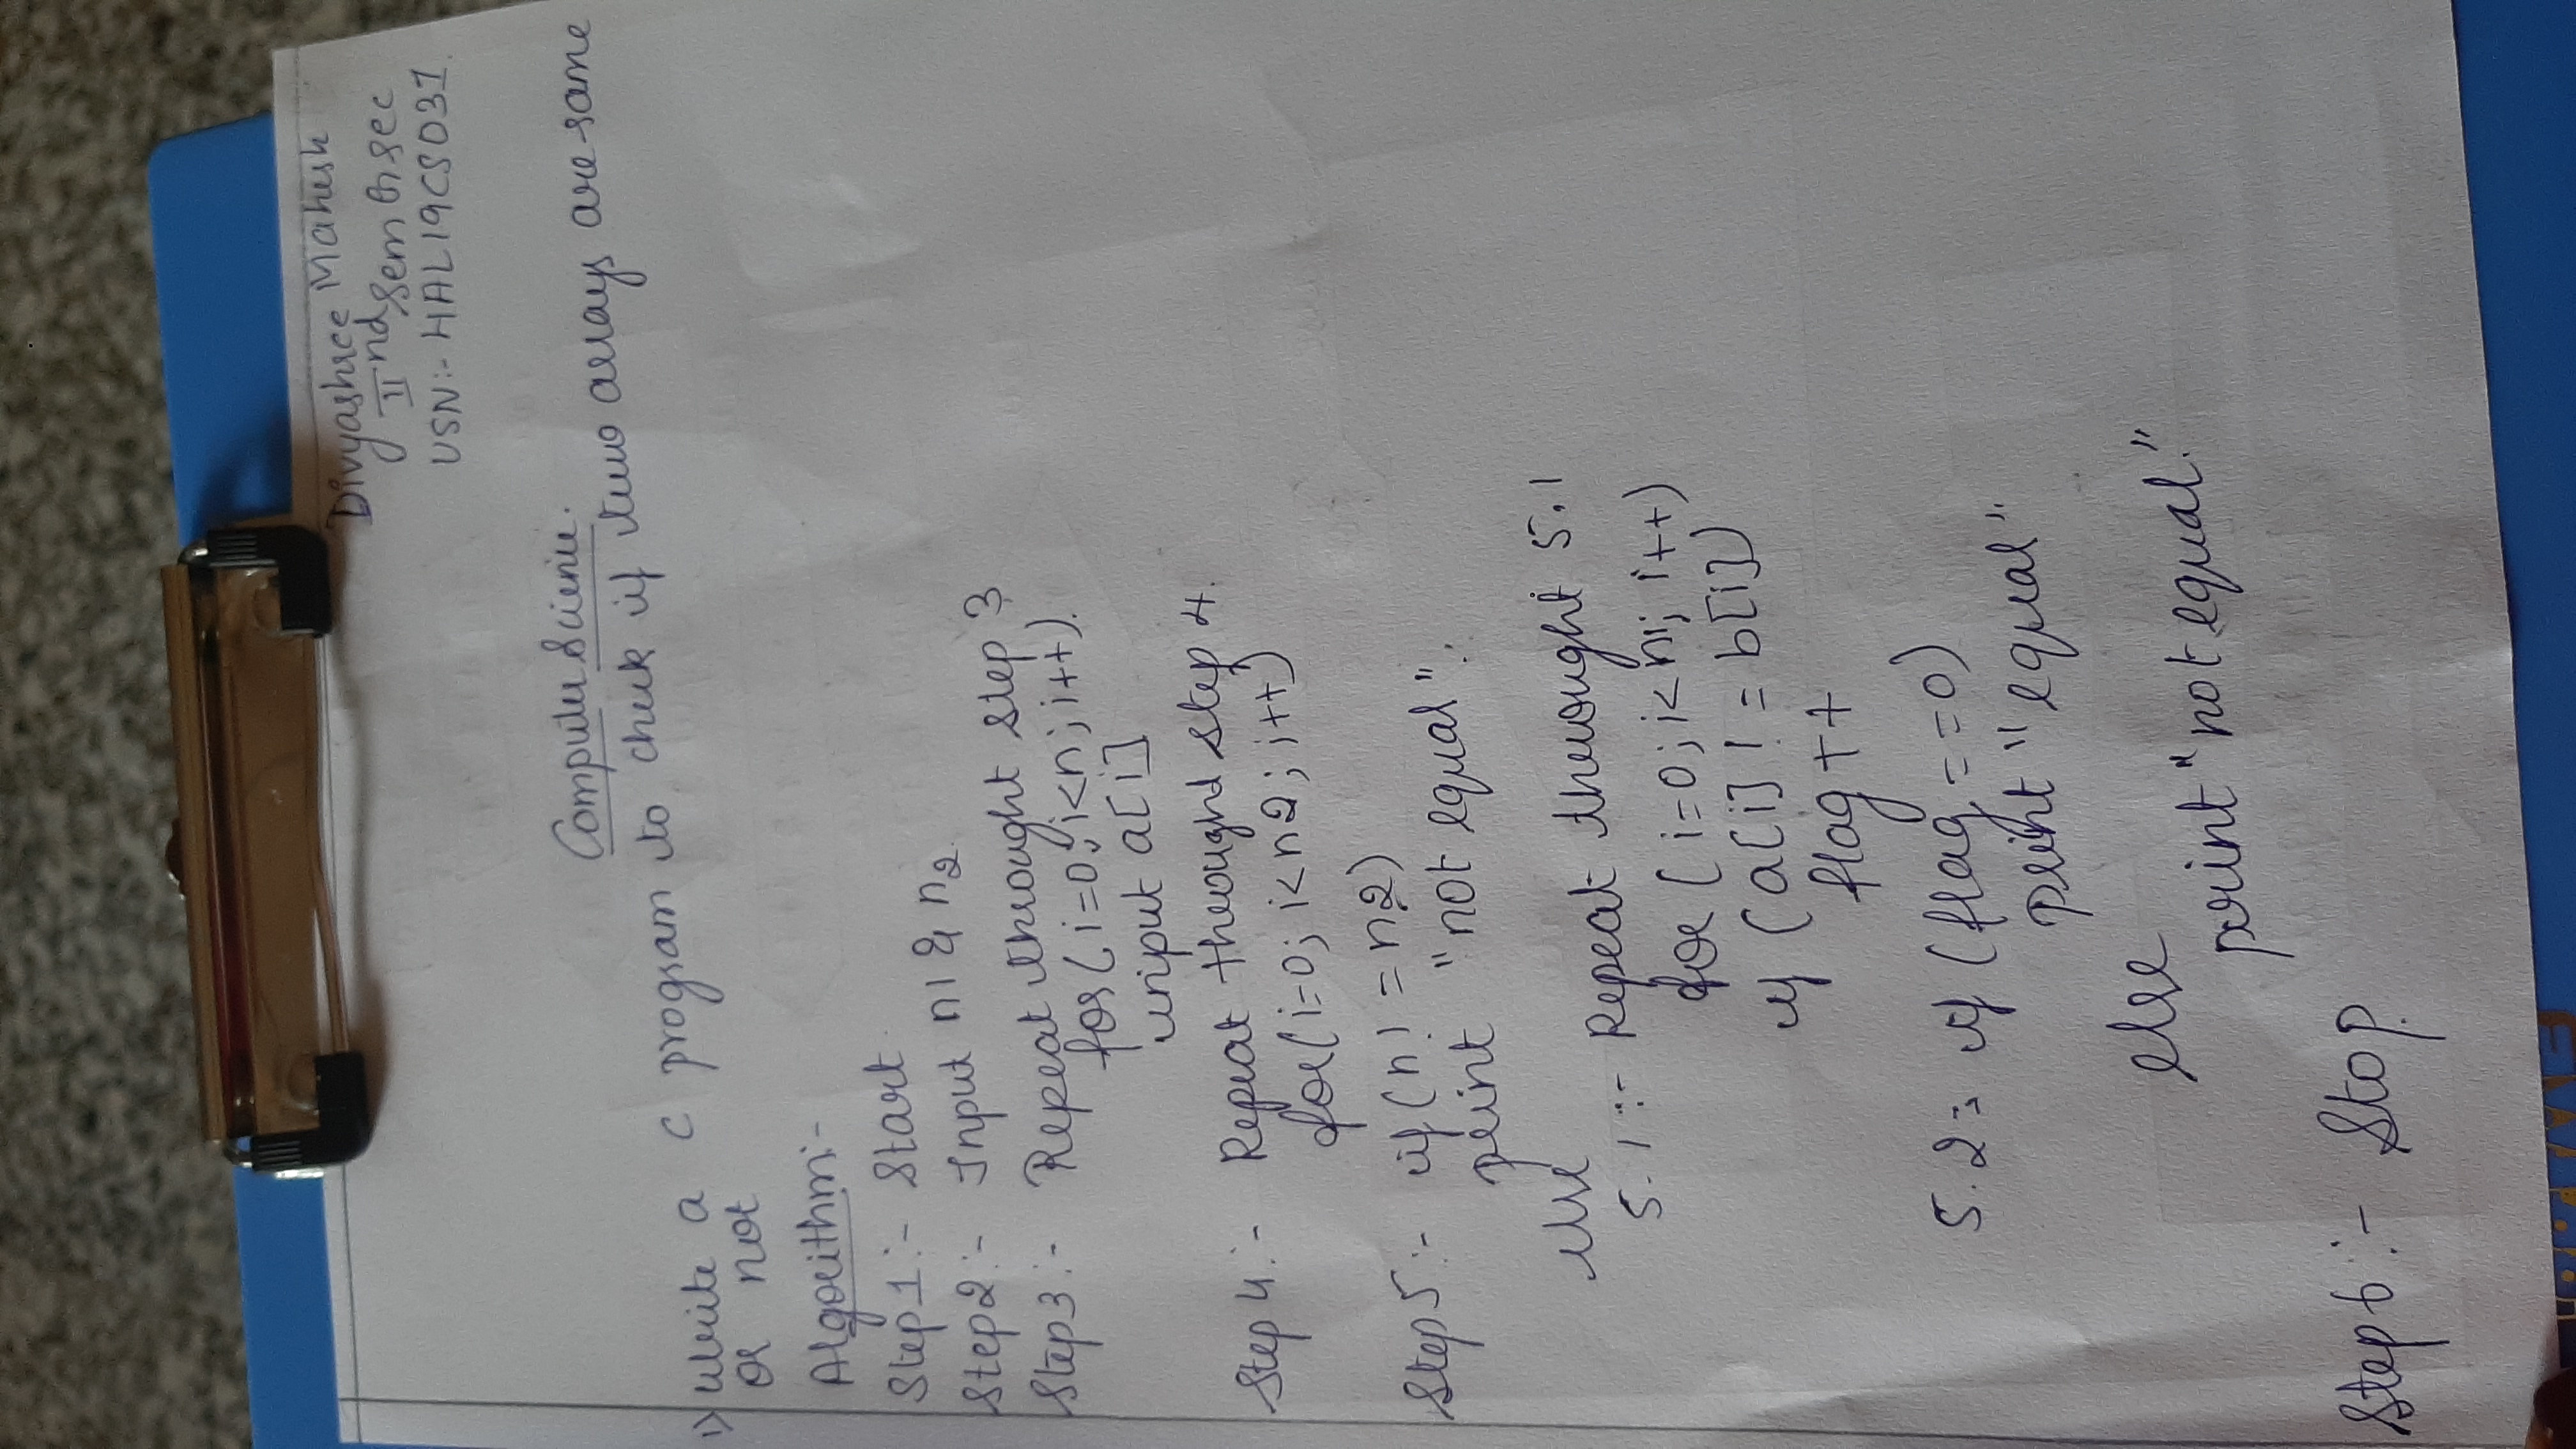 Divyashree Mahesh
IInd Sem B sec
USN:- 4AL19CS031
Computer Science.
1) Write a C program to check if two arrays are same
or not
Algorithm:-
Step1:- Start
Step2:- Input n1 & n2
Step3:- Repeat throught step 3
for(i=0;i<n;i++).
input a[i]
Step4:- Repeat throught step 4.
for(i=0; i<n2; i++)
Step5:- if(n! =n2)
print "not equal".
else
5.1:- Repeat throught 5.1
for (i=0;i<n1; i++)
if (a[i]! = b[i])
flag++
5.2: if (flag==0)
print "equal"
else
print "not equal."
Step6:- Stop